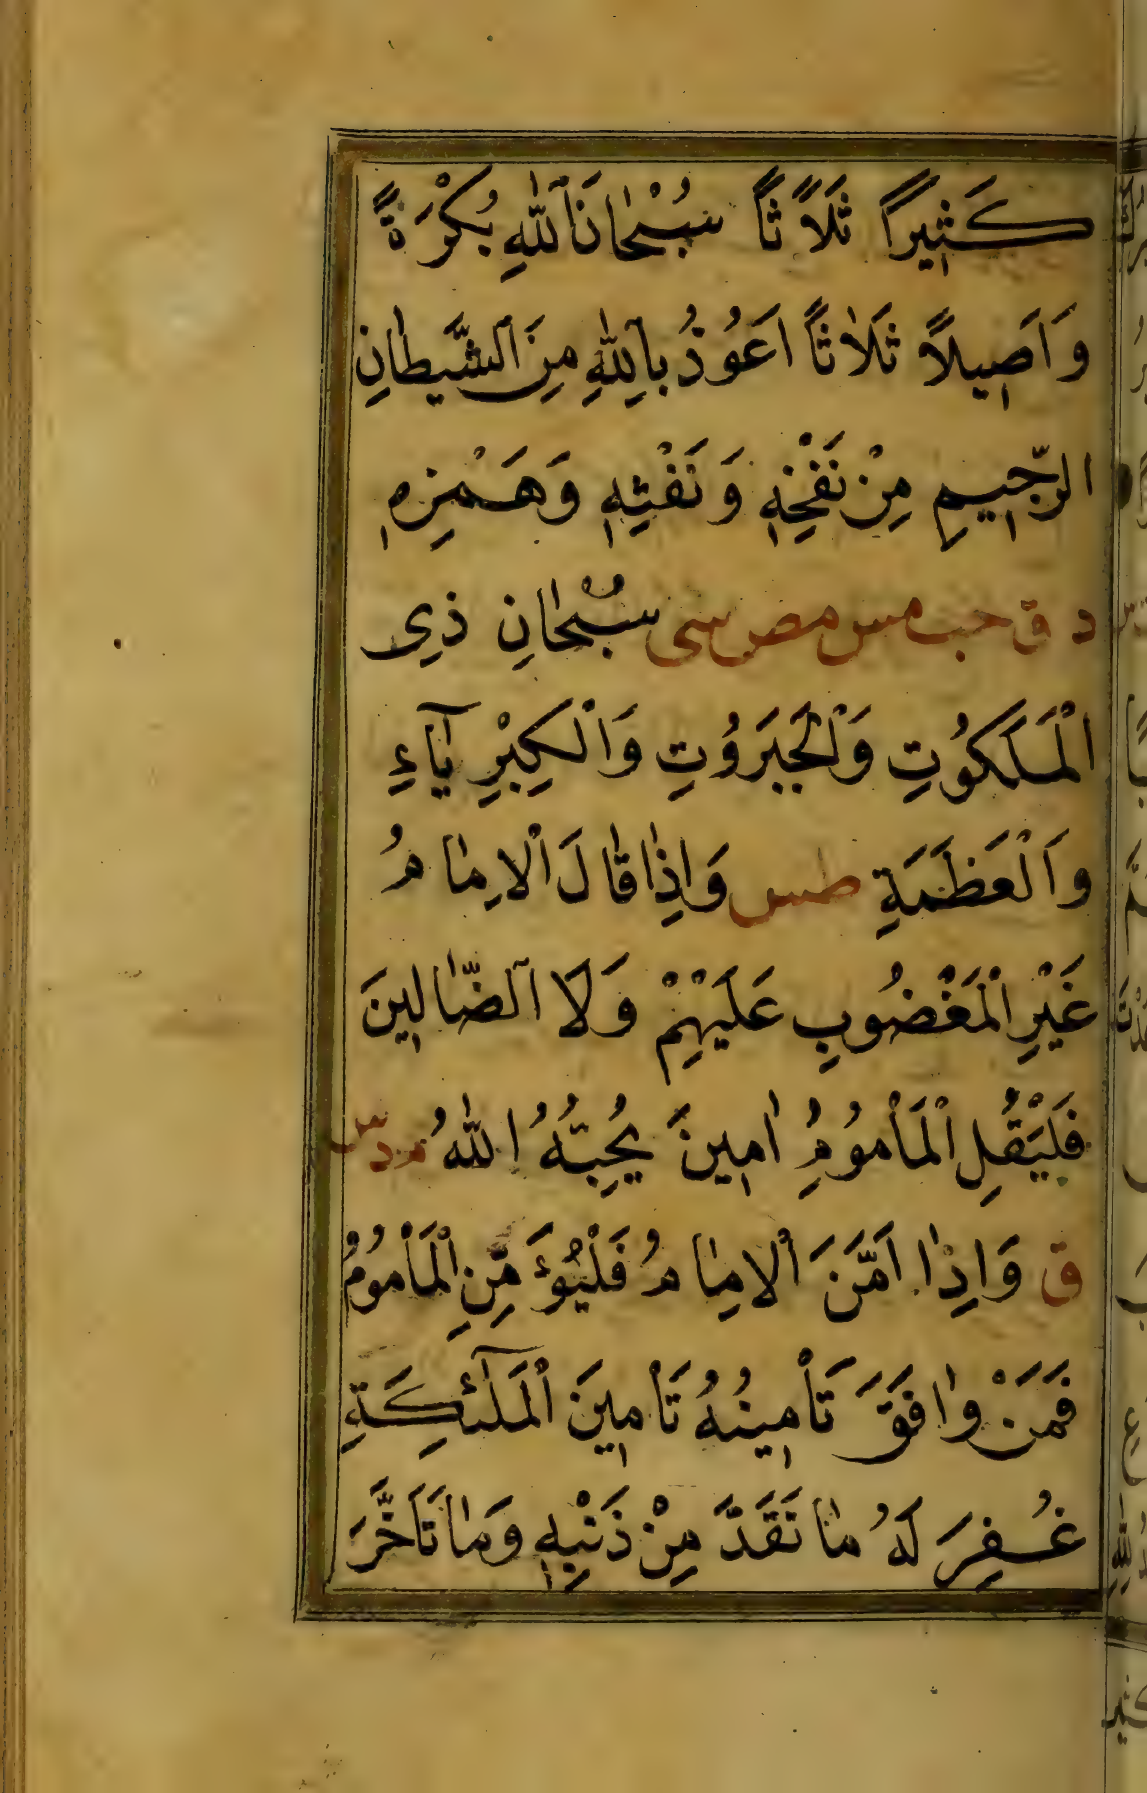 كَثِيرًا ثَلَاثًا سُبْحَانَ اللّٰهِ بُكْرَةً
وَاَصِيلًا ثَلَاثًا اَعُوذُ بِاللّٰهِ مِنَ الشَّيْطَانِ
الرَّجِيمِ مِنْ نَفْخِهِ وَنَفْثِهِ وَهَمْزِهِ
د ق حب مس مص سى سُبْحَانِ ذِى
الْمَلَكُوتِ وَالْجَبَرُوتِ وَالْكِبْرِيَآءِ
وَالْعَظَمَةِ طس وَاِذَا قَالَ الْاِمَامُ
غَيْرِ الْمَغْضُوبِ عَلَيْهِمْ وَلَا الضَّالِينَ
فَلْيَقُلِ الْمَأْمُومُ اٰمِينَ يُحِبُّهُ اللّٰهُ م د س
ق وَاِذَا اَمَّنَ الْاِمَامُ فَلْيُؤَمِّنِ الْمَأْمُومُ
فَمَنْ وَافَقَ تَأْمِينُهُ تَأْمِينَ الْمَلٰٓئِكَةِ
غُفِرَ لَهُ مَا تَقَدَّ مِنْ ذَنْبِهِ وَمَا تَاَخَّرَ